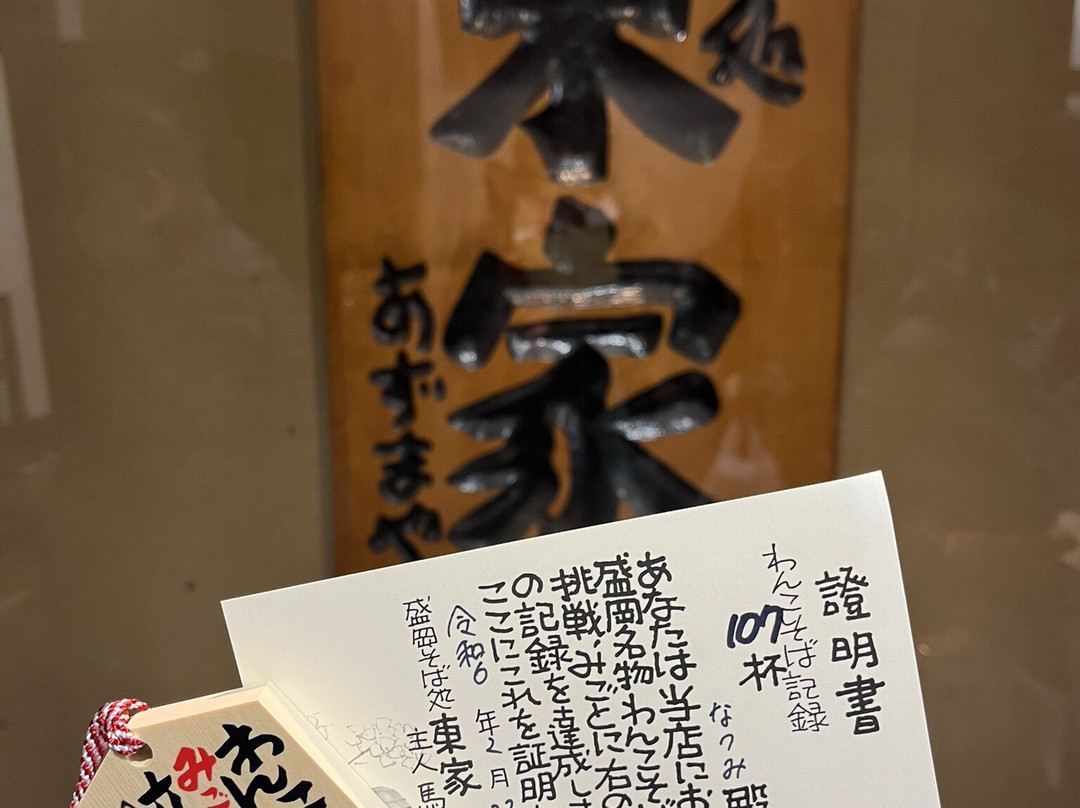 処
東
家
あずまや
證明書
わんこそば記録
107杯
なつみ殿
あなたは当店にお
盛岡名物わんこそば
挑戦、みごとに右の
の記録を達成しま
ここにこれを証明
令和6年2月
盛岡そば処東家
主人 馬
わんこ
みご